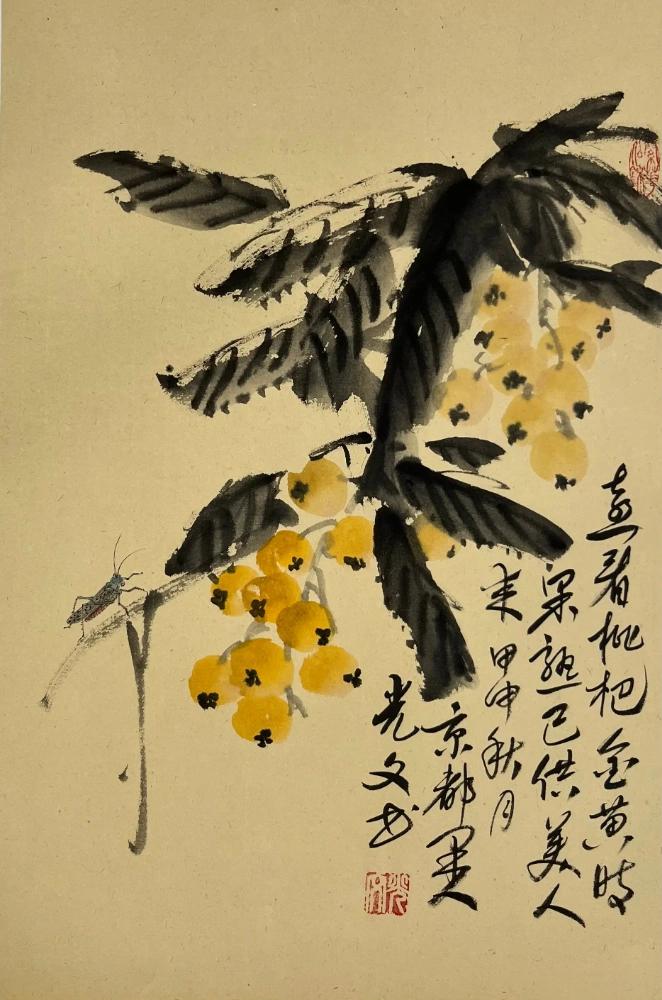 喜看枇杷金黄时
果熟已供美人
来甲申秋月
京都墨人
光文书